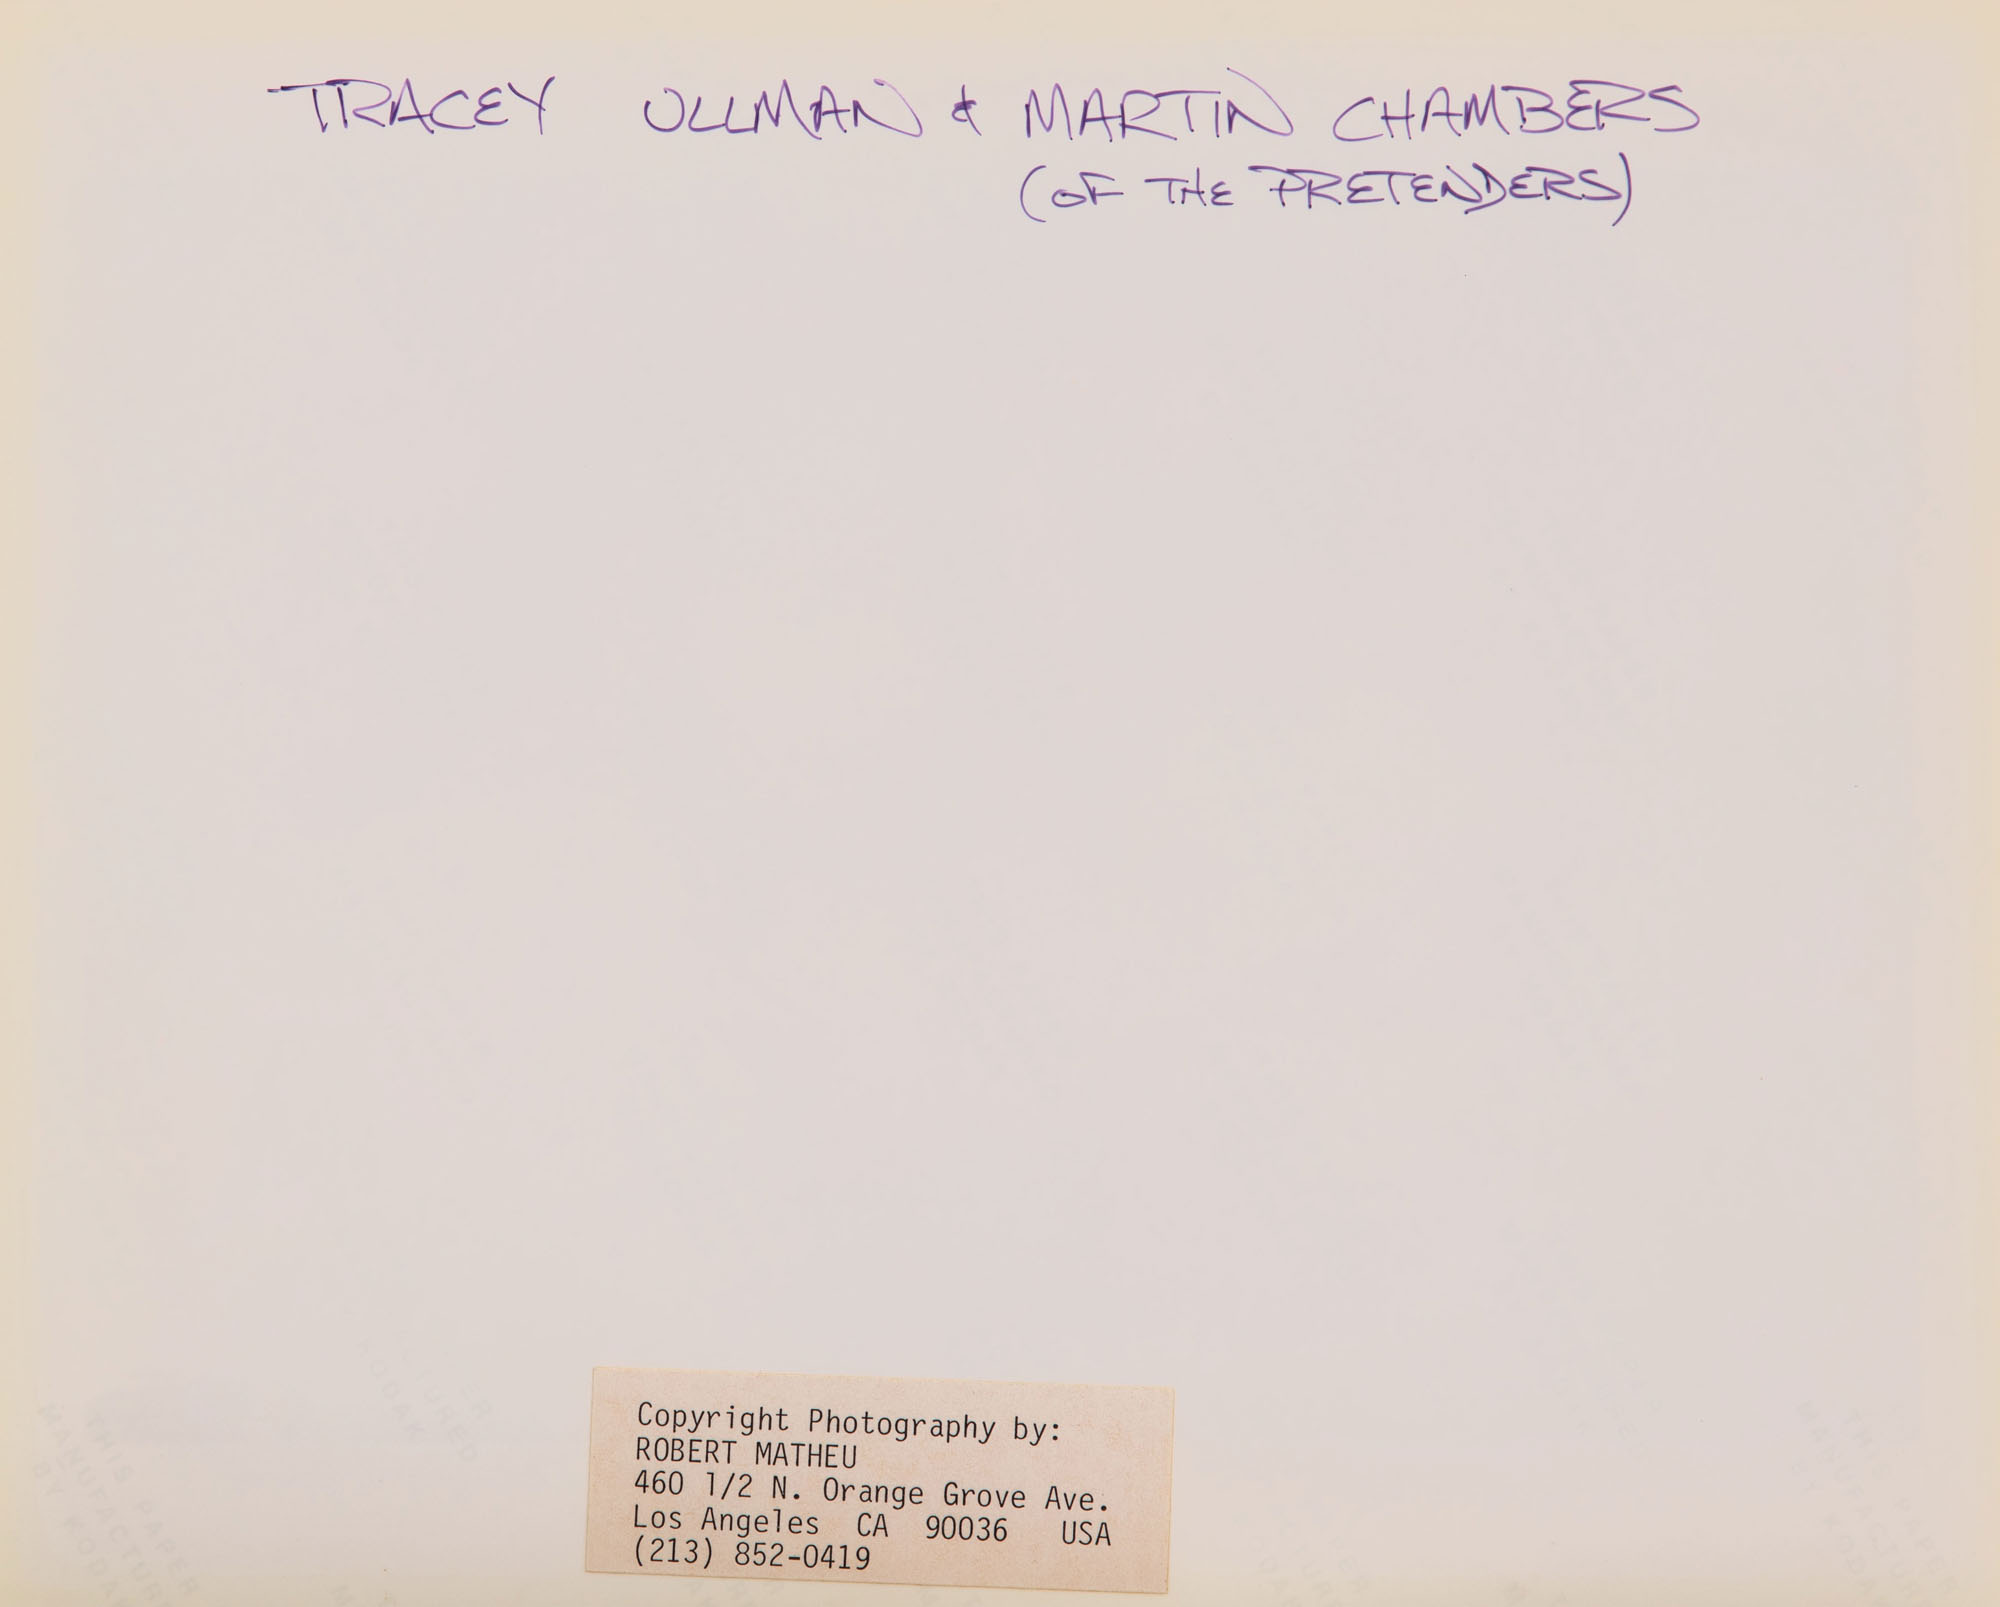 TRACEY ULLMAN & MARTIN CHAMBERS
(OF THE PRETENDERS)
Copyright Photography by:
ROBERT MATHEU
460 1/2 N. Orange Grove Ave.
Los Angeles CA 90036 USA
(213) 852-0419
THIS PAPER
MANUFACTURED
BY KODAK